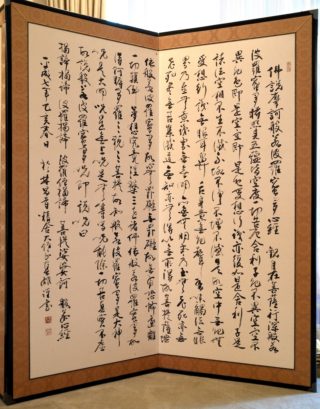 佛説摩訶般若波羅蜜多心経 観自在菩薩行深般若
波羅蜜多時照見五蘊皆空度一切苦厄舎利子色不異空空不
異色色即是空空即是色受想行識亦復如是舎利子是
諸法空相不生不滅不垢不浄不増不減是故空中無色無
受想行識無眼耳鼻舌身意無色声香味触法無眼
界乃至無意識界無無明亦無無明尽乃至無老死亦無
老死尽無苦集滅道無智亦無得以無所得故菩提薩埵
依般若波羅蜜多故心無罣礙無罣礙故無有恐怖遠離
一切顛倒夢想究竟涅槃三世諸佛依般若波羅蜜多故
得阿耨多羅三藐三菩提故知般若波羅蜜多是大神
呪是大明呪是無上呪是無等等呪能除一切苦真実不虚
故説般若波羅蜜多呪即説呪曰
羯諦羯諦 波羅羯諦 波羅僧羯諦 菩提薩婆訶 般若心経
平成七年乙亥春日 於